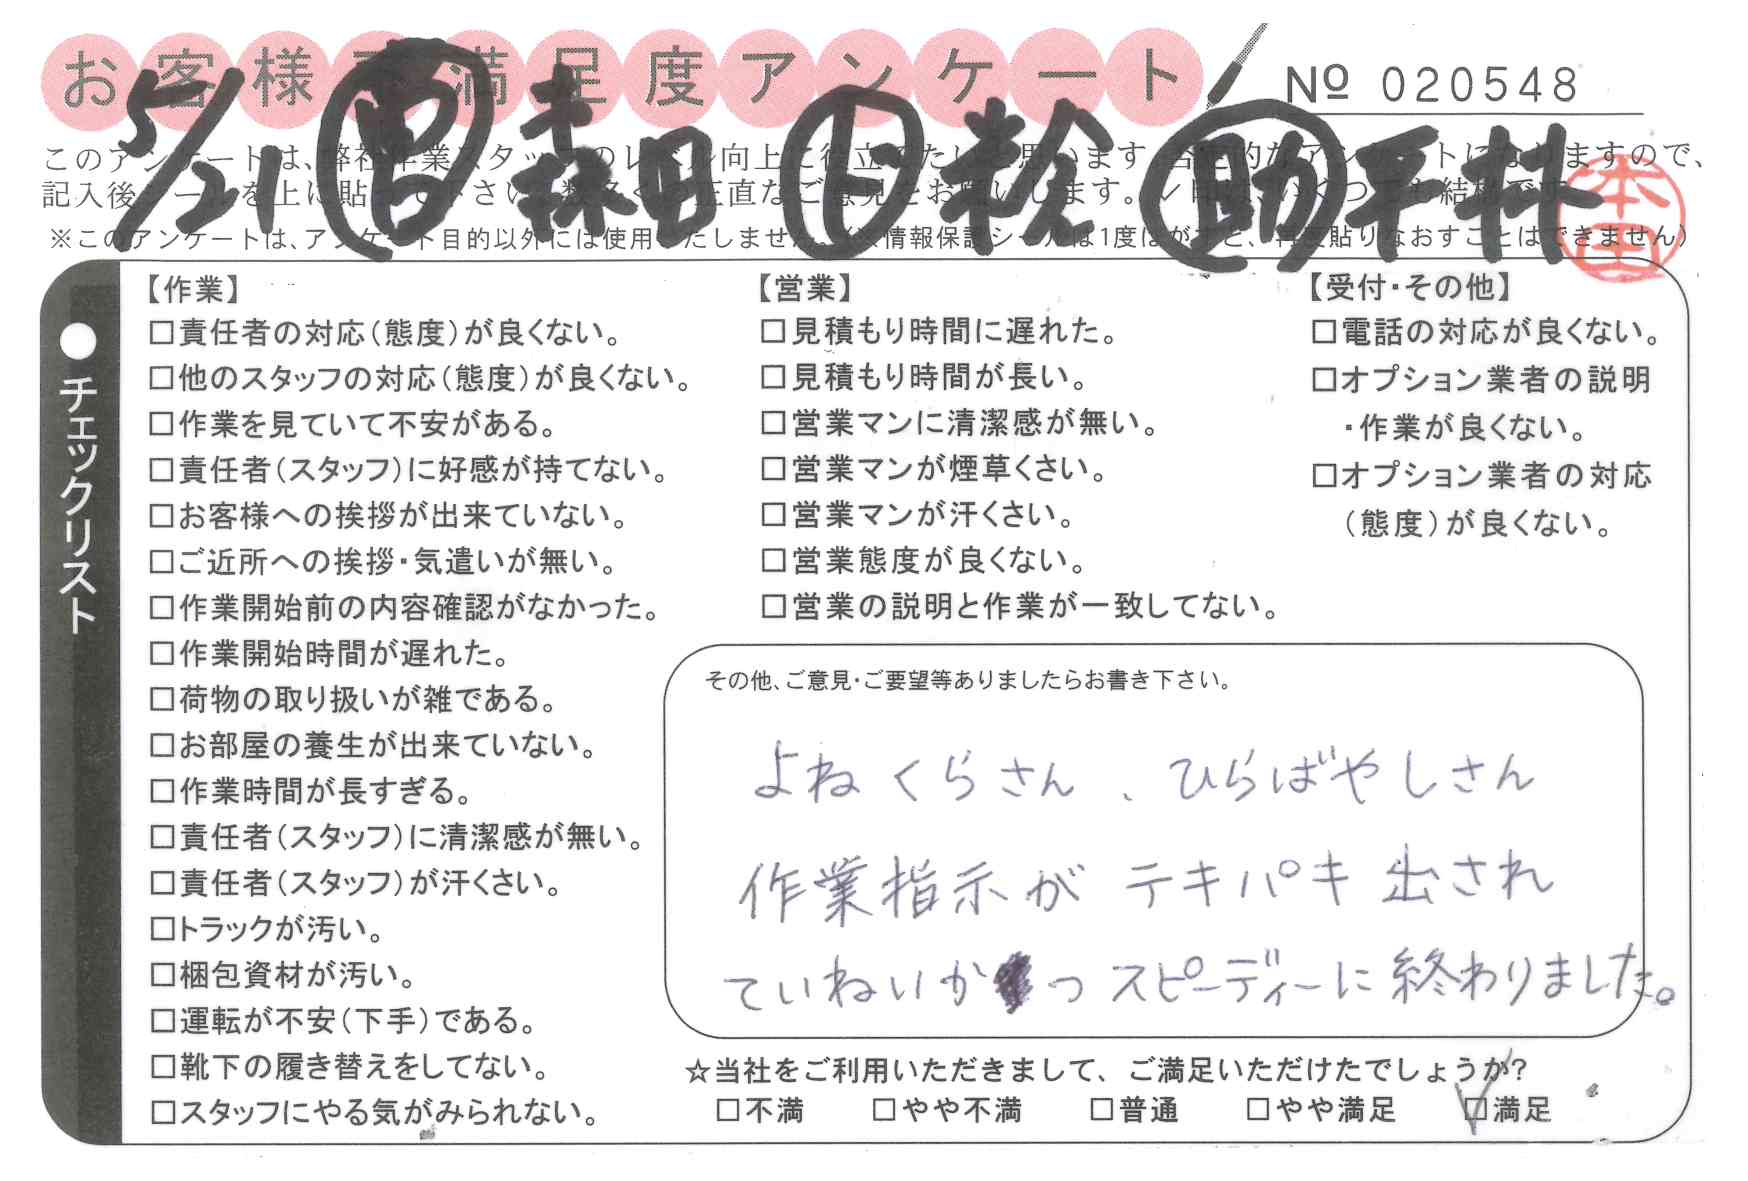 お客様不満足度アンケート
№ 020548
5/21 営 森田 ト 米倉 助 平林
本田
このアンケートは、弊社作業スタッフのレベル向上に役立てたいと思います。否定的なアンケートになりますので、
記入後シールを上に貼って下さい。数多くの正直なご意見をお願いします。✓印は、いくつでも結構です。
※このアンケートは、アンケート目的以外には使用いたしません。(※情報保護シールは1度はがすと、再度貼りなおすことはできません)
●チェックリスト
【作業】
□責任者の対応(態度)が良くない。
□他のスタッフの対応(態度)が良くない。
□作業を見ていて不安がある。
□責任者(スタッフ)に好感が持てない。
□お客様への挨拶が出来ていない。
□ご近所への挨拶・気遣いが無い。
□作業開始前の内容確認がなかった。
□作業開始時間が遅れた。
□荷物の取り扱いが雑である。
□お部屋の養生が出来ていない。
□作業時間が長すぎる。
□責任者(スタッフ)に清潔感が無い。
□責任者(スタッフ)が汗くさい。
□トラックが汚い。
□梱包資材が汚い。
□運転が不安(下手)である。
□靴下の履き替えをしてない。
□スタッフにやる気がみられない。
【営業】
□見積もり時間に遅れた。
□見積もり時間が長い。
□営業マンに清潔感が無い。
□営業マンが煙草くさい。
□営業マンが汗くさい。
□営業態度が良くない。
□営業の説明と作業が一致してない。
【受付・その他】
□電話の対応が良くない。
□オプション業者の説明
・作業が良くない。
□オプション業者の対応
(態度)が良くない。
その他、ご意見・ご要望等ありましたらお書き下さい。
よねくらさん、ひらばやしさん
作業指示がテキパキ出され
ていねいかつスピーディーに終わりました。
☆当社をご利用いただきまして、ご満足いただけたでしょうか?
□不満 □やや不満 □普通 □やや満足 ☑満足